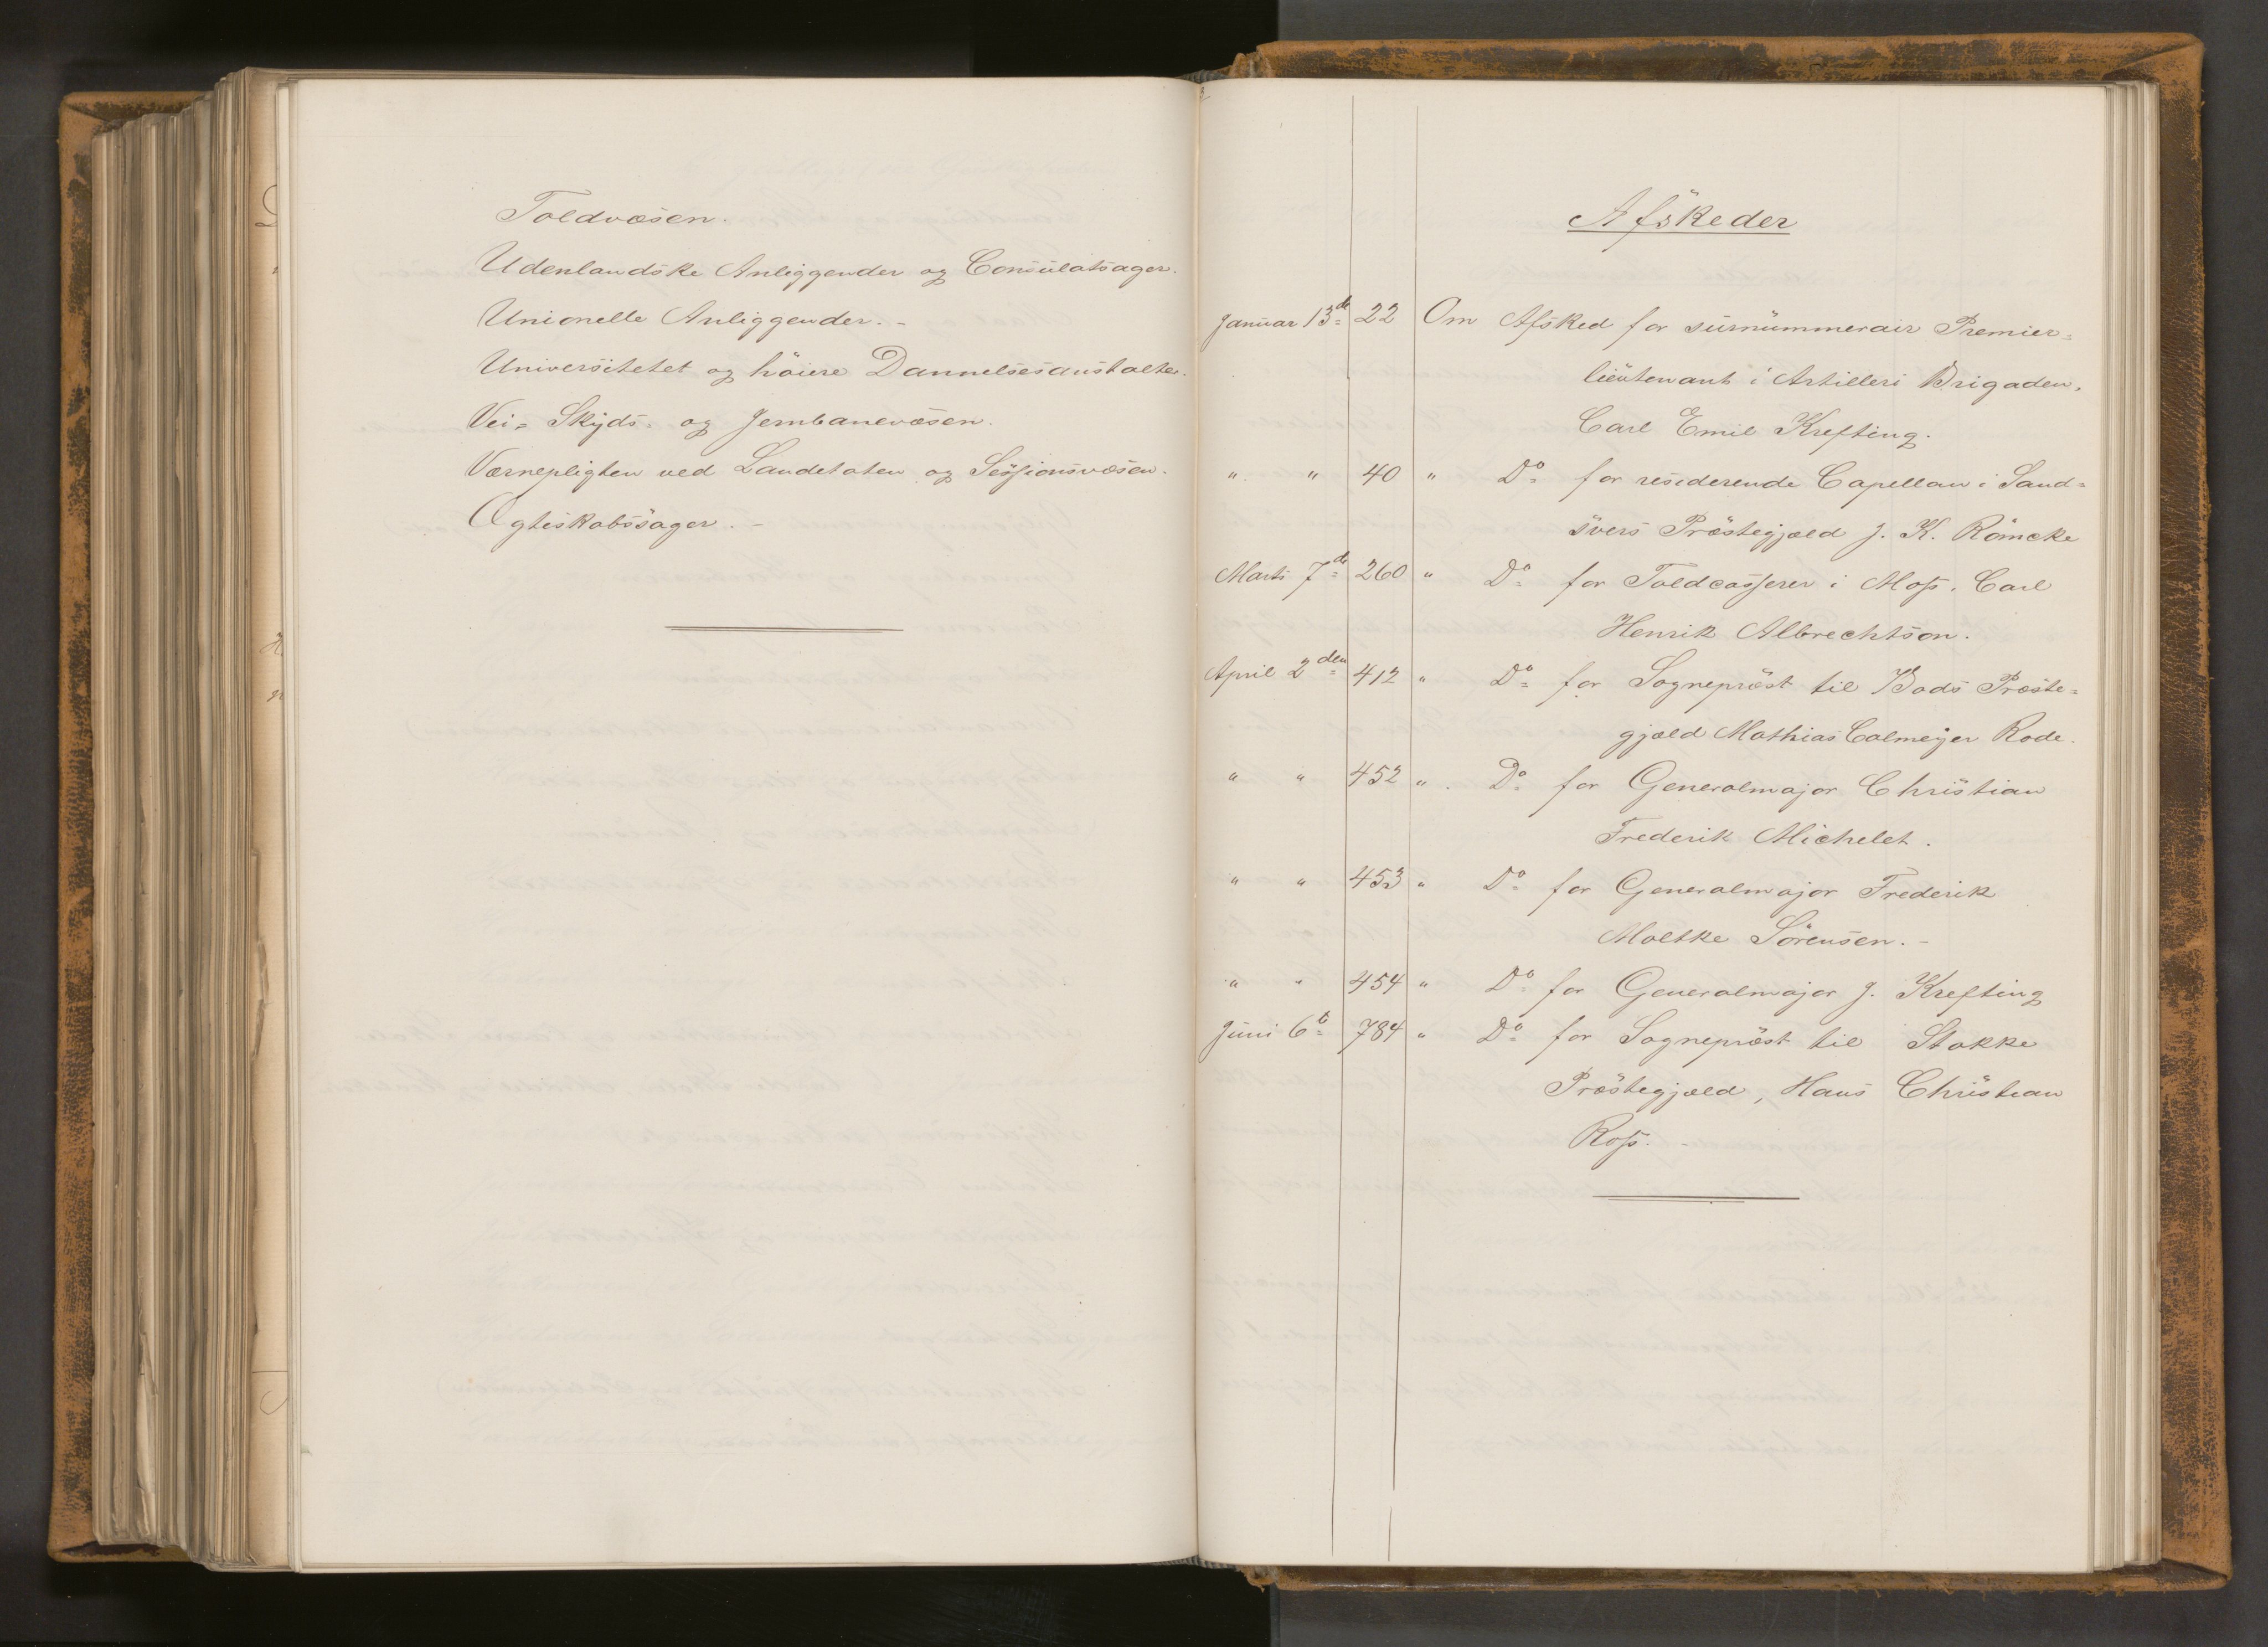 Toldvæsen.
Udenlandske Anliggender og Consulatsager.
Unionelle Anliggender. -
Universitetet og höiere Dannelsesanstalter.
Vei- Skyds- og Jernbanevæsen.
Værnepligten ved Landetaten og Sessionsvæsen.
Ægteskabssager. -
Afskeder
Januar 13de 22 Om Afsked for surnummerair Premier=
lieutenant i Artilleri Brigaden,
Carl Emil Krefting.
" " 40 " Do for residerende Capellan i Sand=
sværs Præstegjæld J. K. Römcke
Marts 7de 260 " Do for Toldcasserer i Moss, Carl
Henrik Albrechtson.
April 2den 412 " Do for Sognepræst til Bods Præste=
gjæld Mathias Calmeyer Rode.
" " 452 " Do for Generalmajor Christian
Frederik Michelet.
" " 453 " Do for Generalmajor Frederik
Moltke Sörensen. -
" " 454 " Do for Generalmajor J. Krefting
Juni 6te 784 " Do for Sognepræst til Stokke
Præstegjæld, Hans Christian
Ross. -